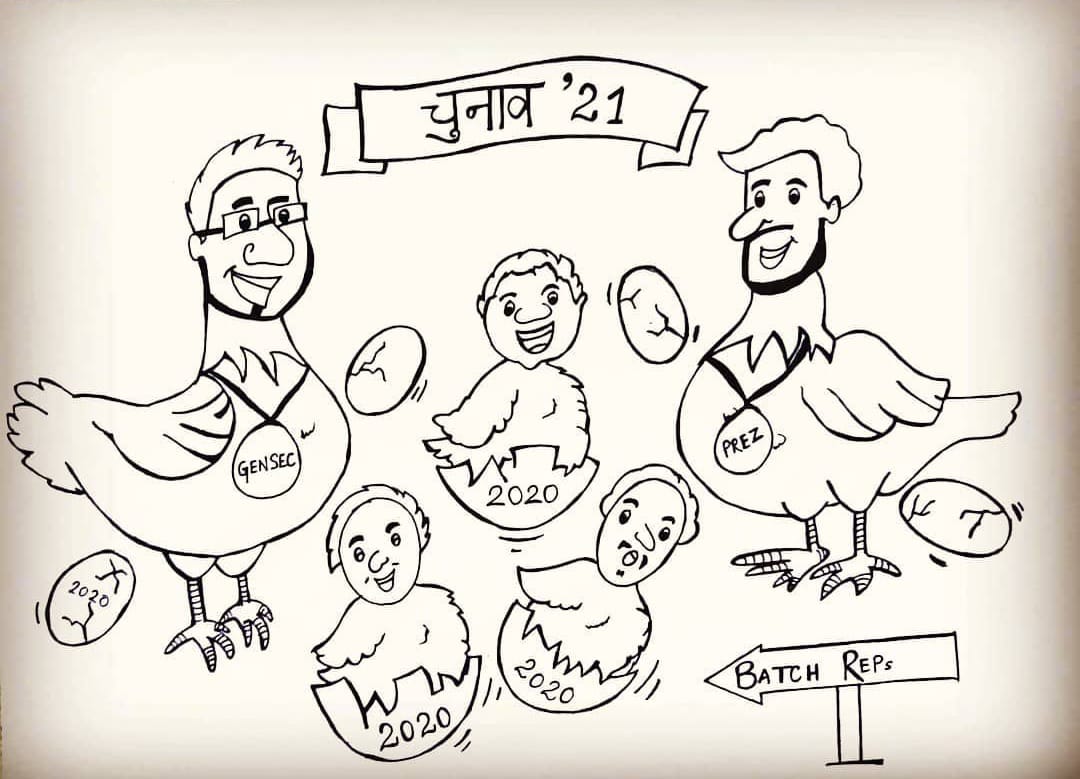 चुनाव '21
GENSEC
PREZ
2020
2020
2020
2020
BATCH REPs